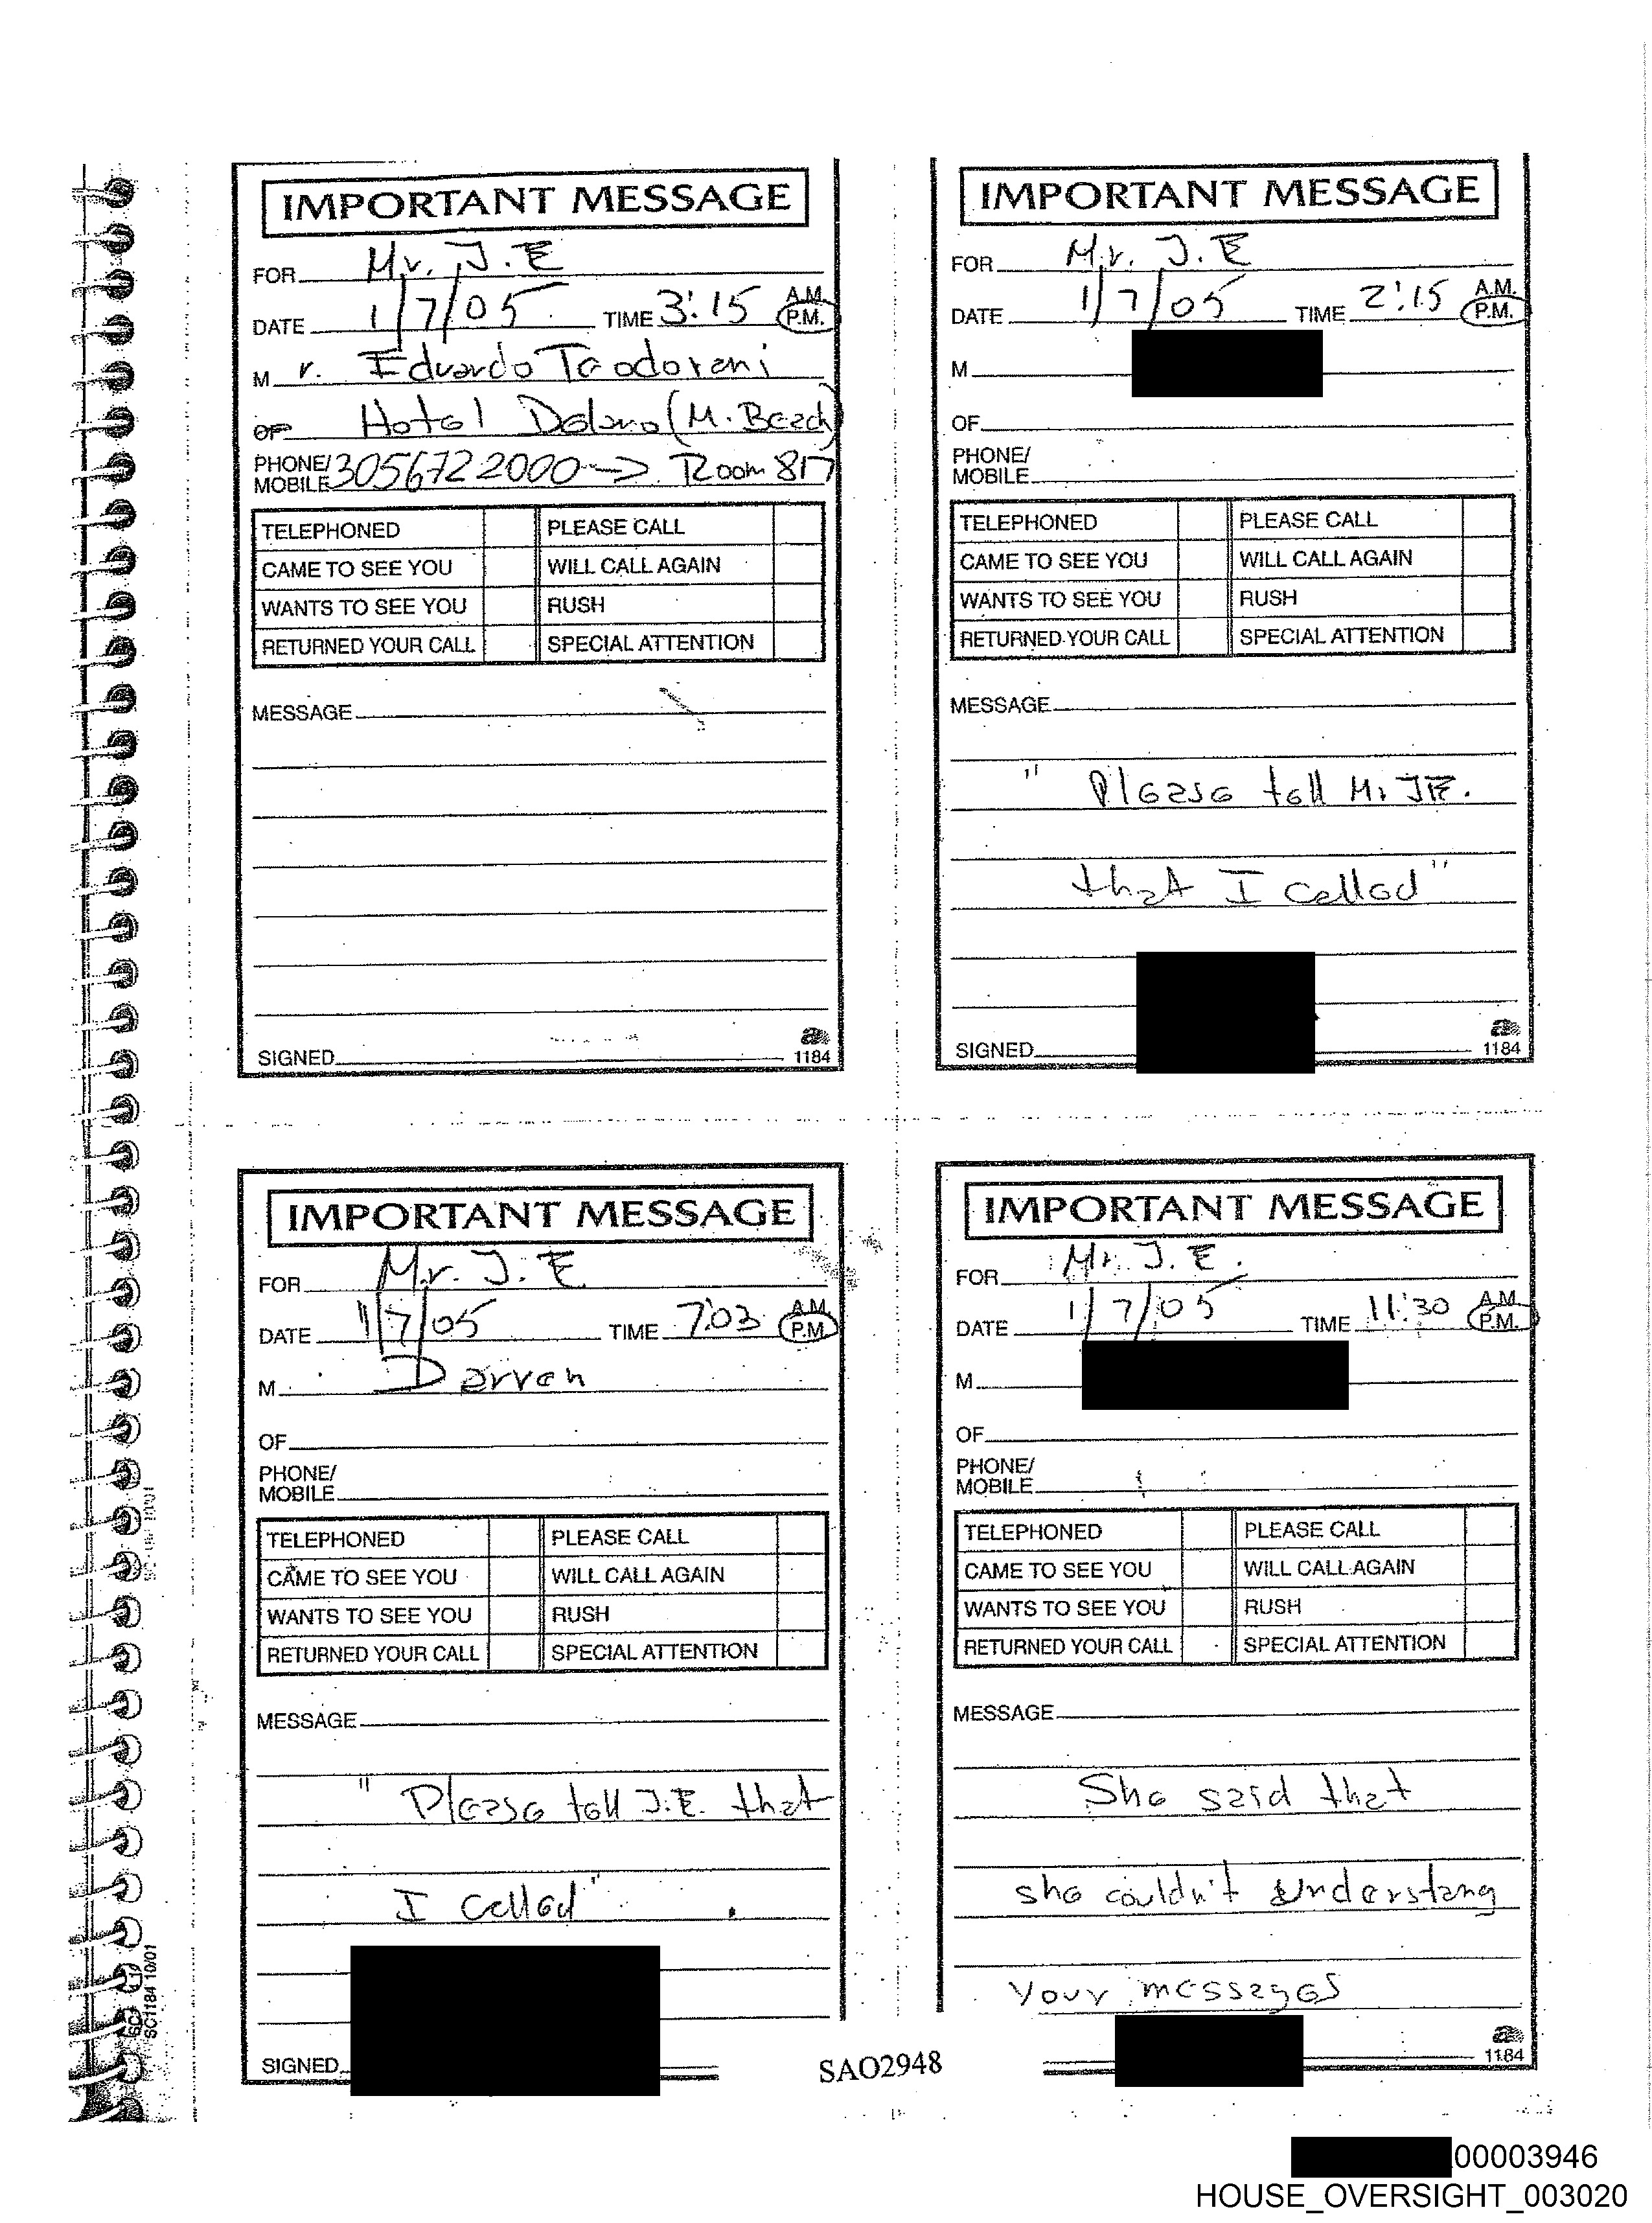 IMPORTANT MESSAGE
FOR Mr. J.E
DATE 1/7/05 TIME 3:15 A.M. P.M.
M r. Eduardo Teodorani
OF Hotel Delano (M. Beach)
PHONE/ MOBILE 3056722000 -> Room 817
TELEPHONED PLEASE CALL
CAME TO SEE YOU WILL CALL AGAIN
WANTS TO SEE YOU RUSH
RETURNED YOUR CALL SPECIAL ATTENTION
MESSAGE
SIGNED
1184
IMPORTANT MESSAGE
FOR Mr. J.E
DATE 1/7/05 TIME 2:15 A.M. P.M.
M
OF
PHONE/
MOBILE
TELEPHONED PLEASE CALL
CAME TO SEE YOU WILL CALL AGAIN
WANTS TO SEE YOU RUSH
RETURNED YOUR CALL SPECIAL ATTENTION
MESSAGE
" Please tell Mr JE.
that I called "
SIGNED
1184
IMPORTANT MESSAGE
FOR Mr. J.E.
DATE 1/7/05 TIME 7:03 A.M. P.M.
M. Darren
OF
PHONE/
MOBILE
TELEPHONED PLEASE CALL
CAME TO SEE YOU WILL CALL AGAIN
WANTS TO SEE YOU RUSH
RETURNED YOUR CALL SPECIAL ATTENTION
MESSAGE
" Please tell J.E. that
I called "
SIGNED
SC1184 10/01
IMPORTANT MESSAGE
FOR Mr. J.E.
DATE 1/7/05 TIME 11:30 A.M. P.M.
M
OF
PHONE/
MOBILE
TELEPHONED PLEASE CALL
CAME TO SEE YOU WILL CALL AGAIN
WANTS TO SEE YOU RUSH
RETURNED YOUR CALL SPECIAL ATTENTION
MESSAGE
She said that
she couldn't understang
your messages
1184
SAO2948
00003946
HOUSE_OVERSIGHT_003020